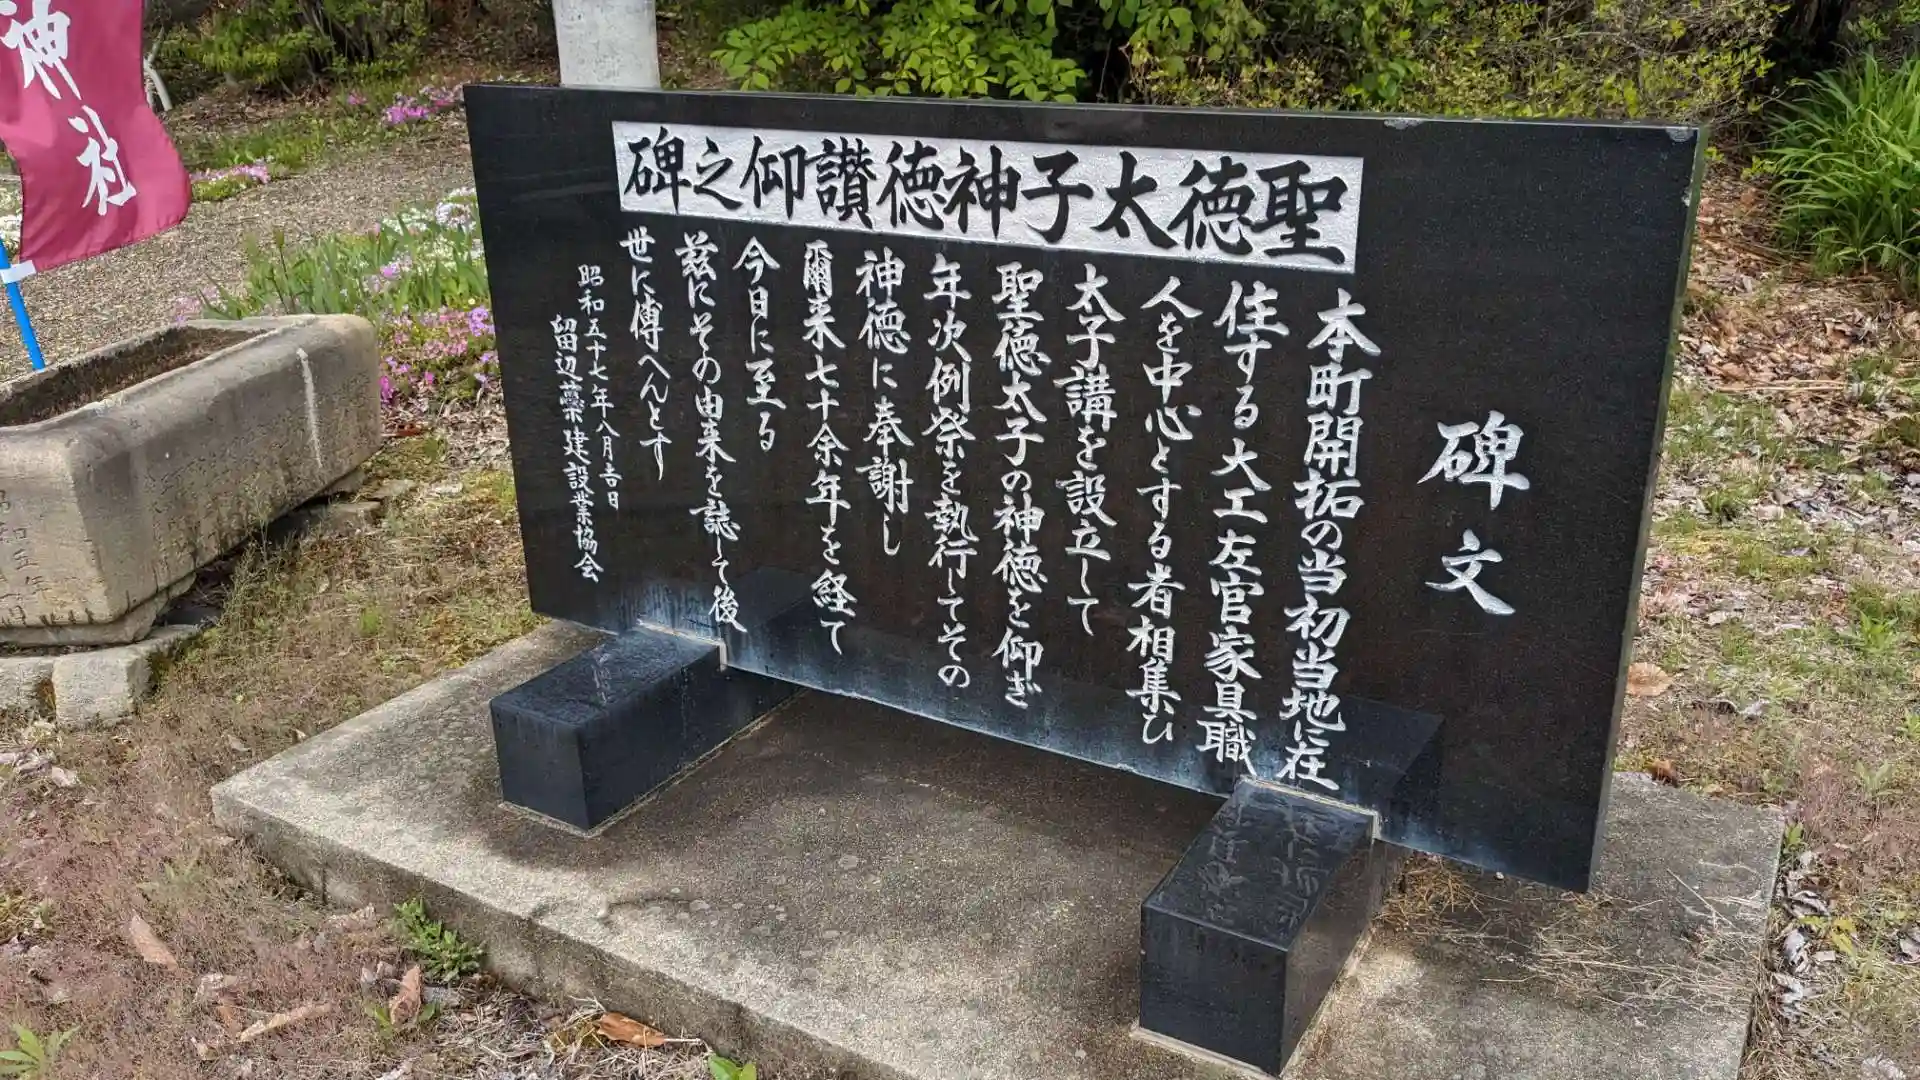 聖徳太子神徳讃仰之碑
碑文
本町開拓の当初当地に在
住する大工左官家具職
人を中心とする者相集ひ
太子講を設立して
聖徳太子の神徳を仰ぎ
年次例祭を執行してその
神徳に奉謝し
爾来七十余年を経て
今日に至る
茲にその由来を誌して後
世に傳へんとす
昭和五十七年八月吉日
留辺蘂建設業協会
神社